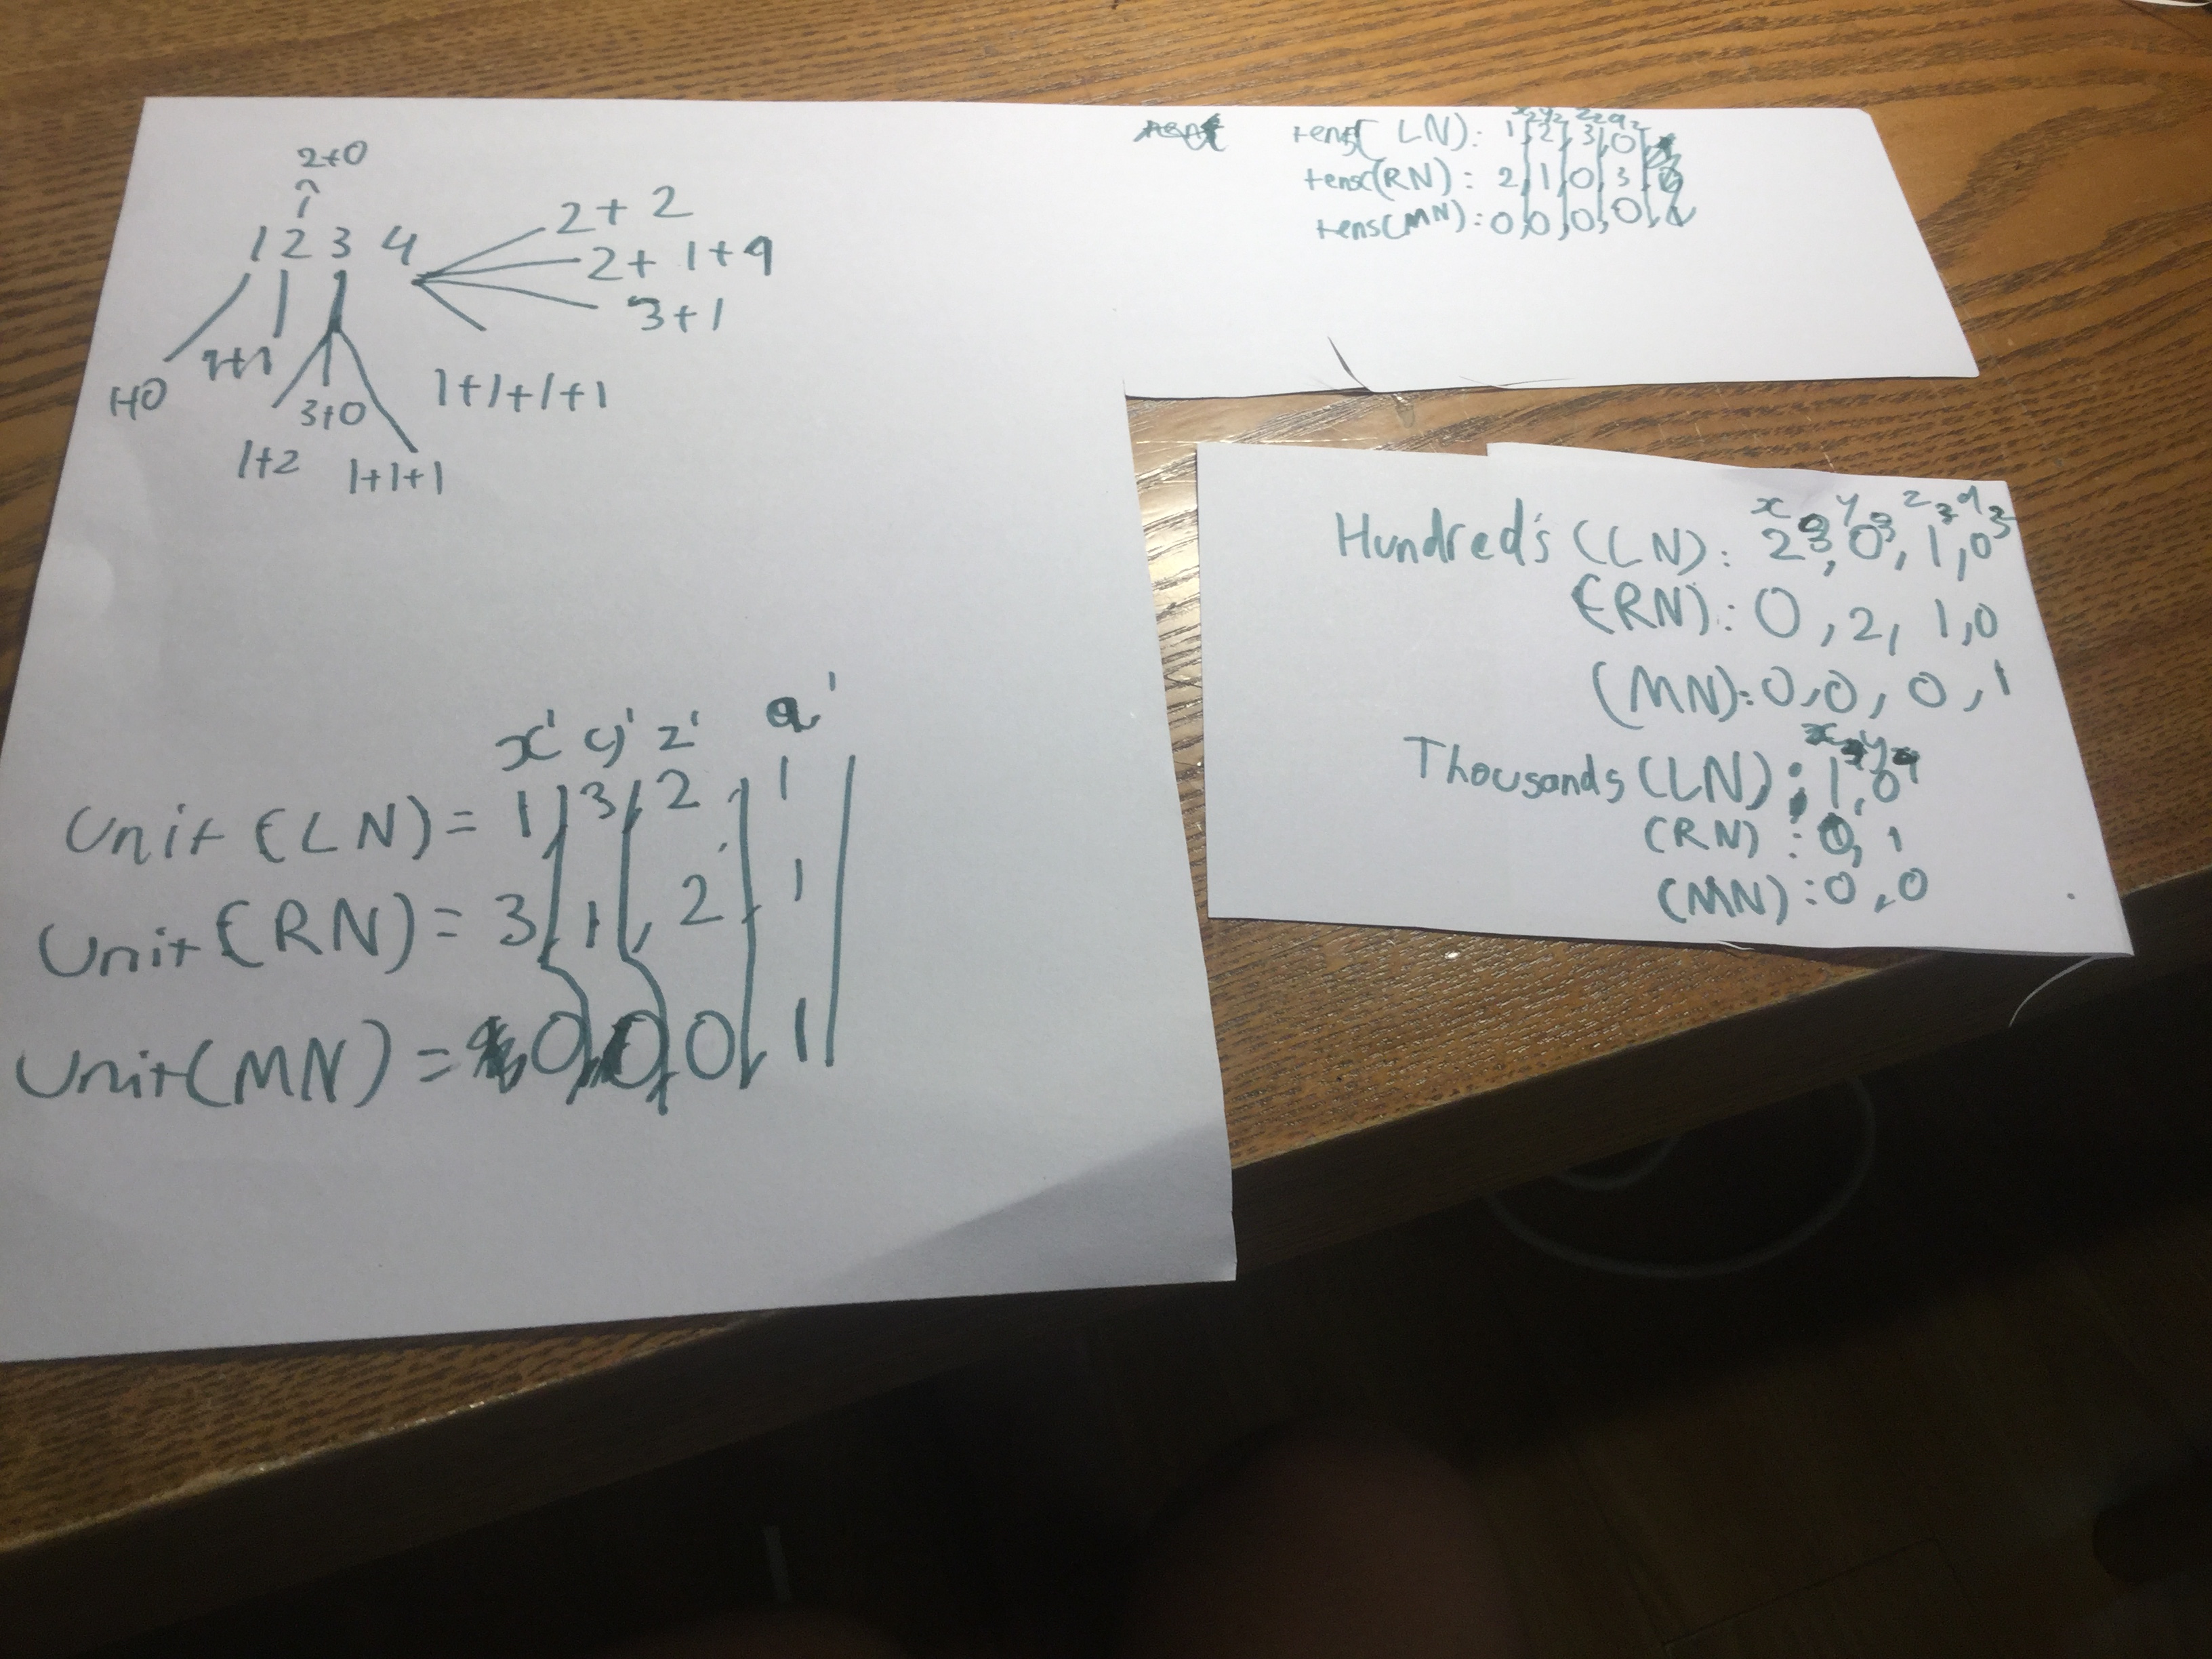 2+0
1 2 3 4
2+ 2
2+ 1+9
3+1
1+0
1+1
3+0
1+2
1+1+1
1+1+1+1
x' y' z' a'
Unit (LN) = 1, 3, 2, 1
Unit (RN) = 3, 1, 2, 1
Unit (MN) = 0, 0, 0, 1
tens( LN): 1, 2, 3, 0,
tens(RN): 2, 1, 0, 3,
tens(MN): 0, 0, 0, 0,
x 3 y 3 z 3 9 3
Hundred's (LN): 2, 0, 1, 0
(RN): 0, 2, 1, 0
(MN): 0, 0, 0, 1
Thousands (LN): 1, 0
(RN): 0, 1
(MN): 0, 0